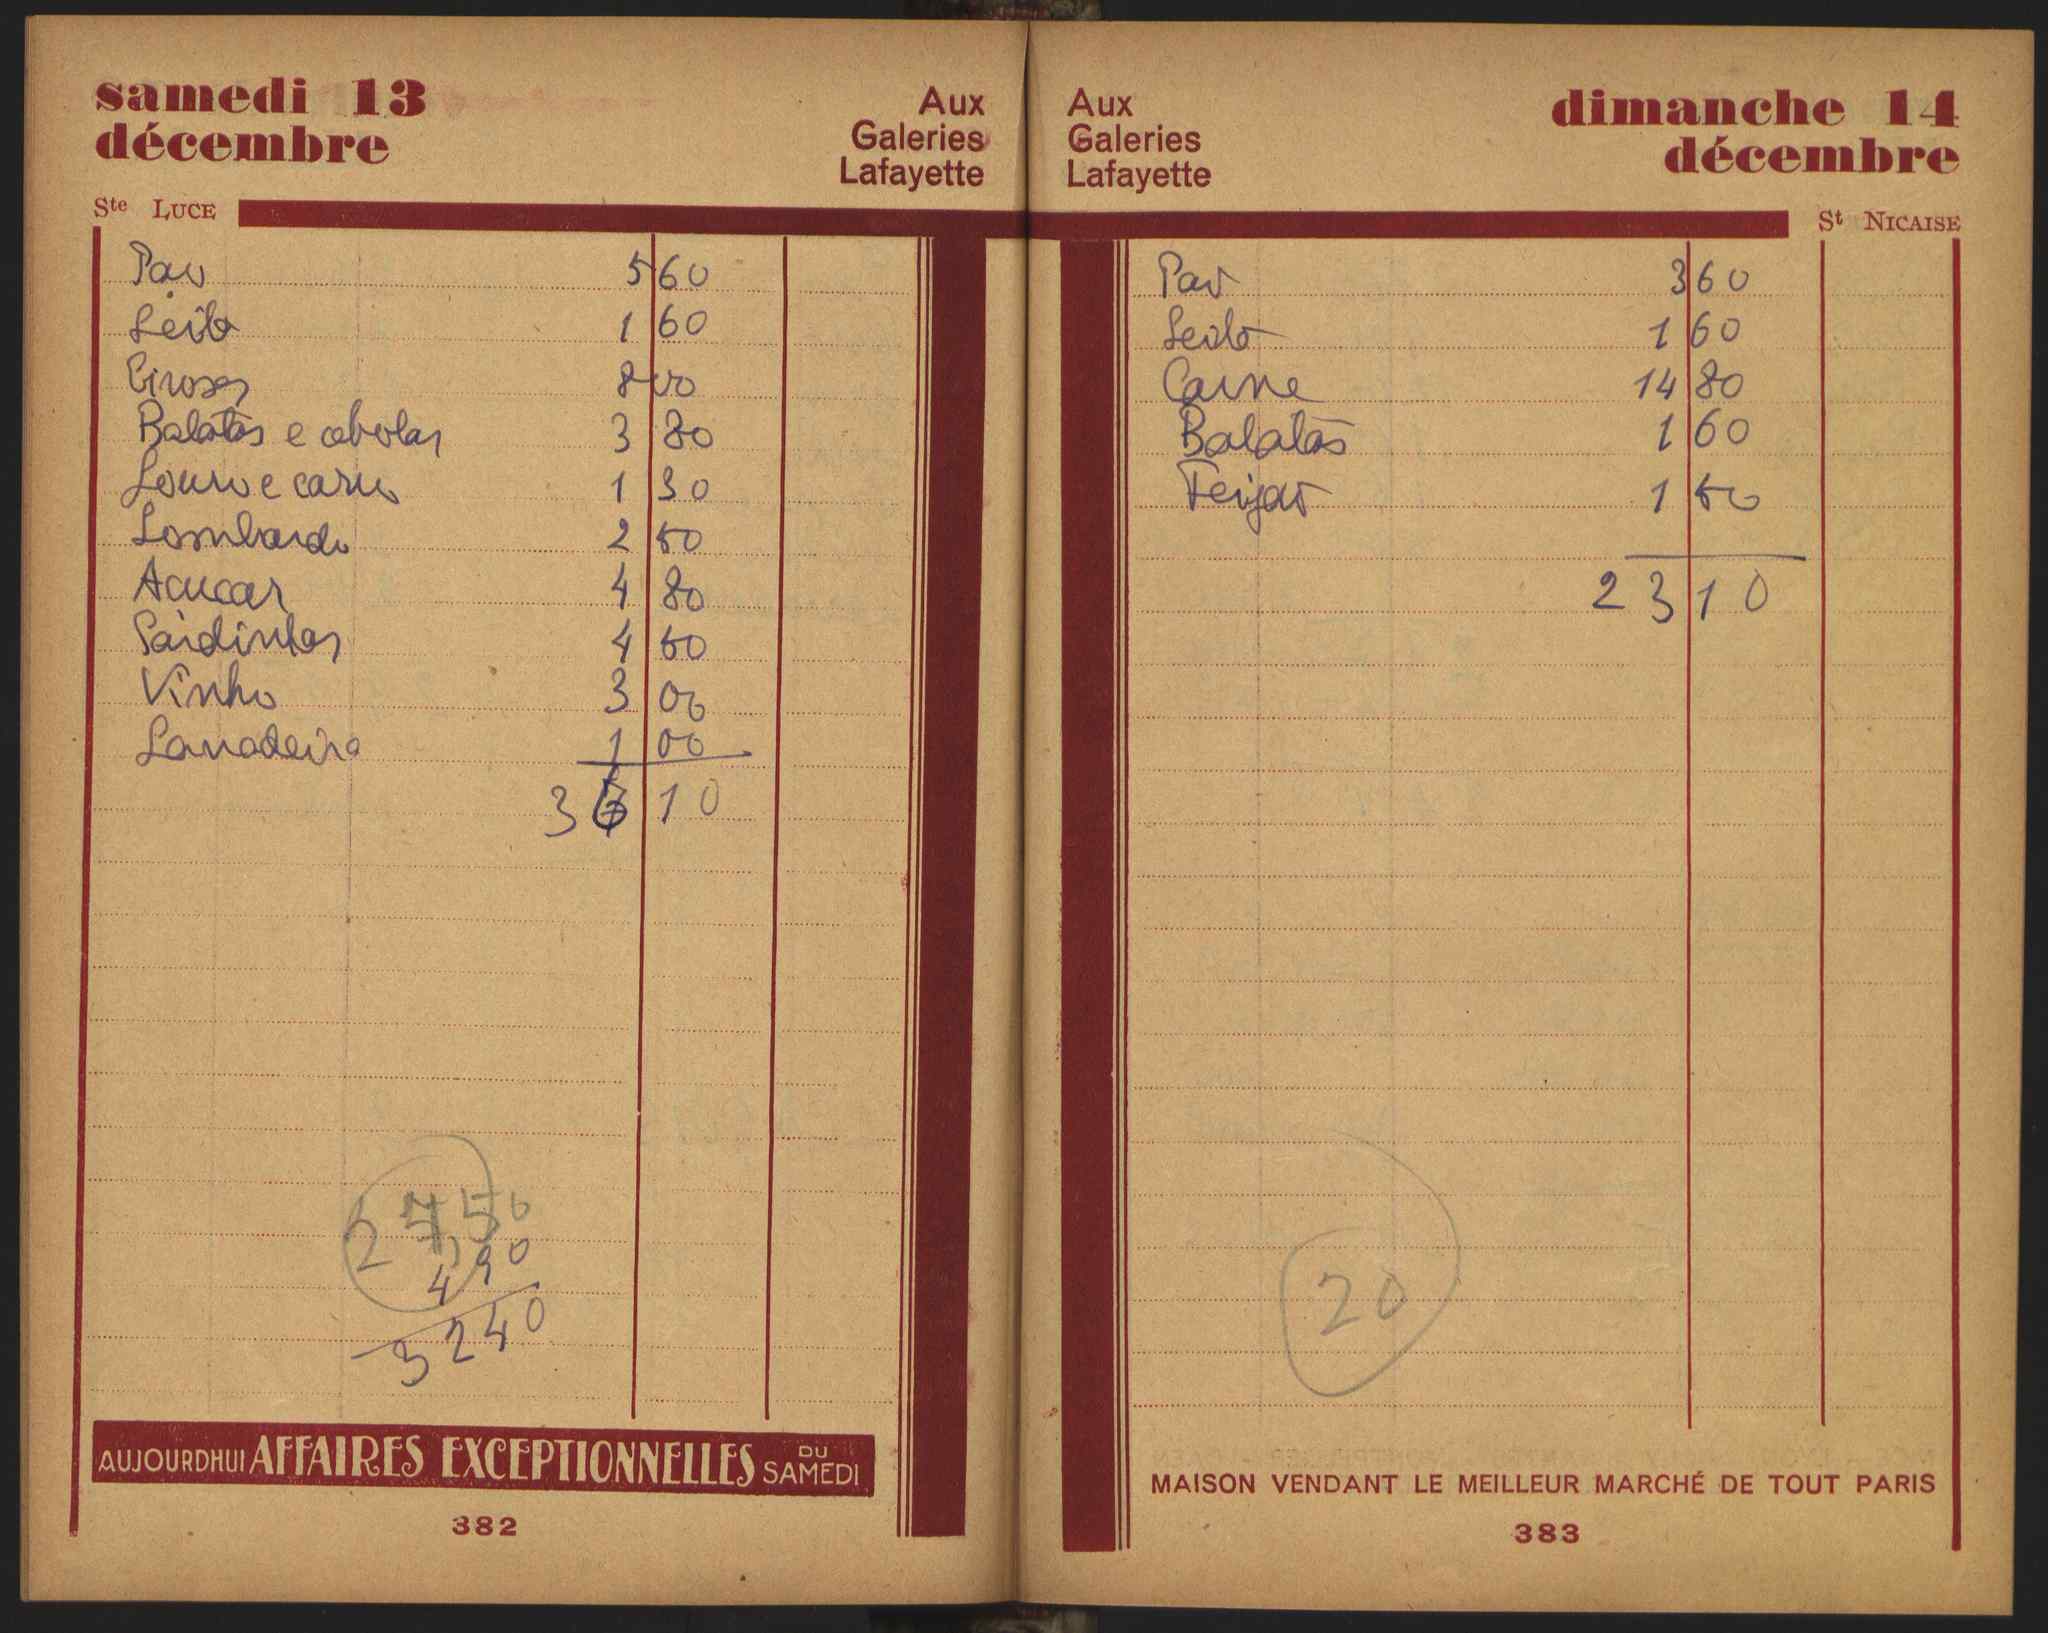 samedi 13
décembre
Aux
Galeries
Lafayette
Ste LUCE
Pão 5 60
Leite 1 60
8 00
Batatas e cebolas 3 80
Louro e 1 30
Lombardo 2 50
Açucar 4 80
Sardinhas 4 50
Vinho 3 00
Lavadeira 1 00
36 10
4 90
3240
AUJOURDHUI AFFAIRES EXCEPTIONNELLES DU SAMEDI
382
Aux
Galeries
Lafayette
dimanche 14
décembre
St NICAISE
Pão 3 60
Leite 1 60
Carne 14 80
Batatas 1 60
Feijão 1 50
23 10
20
MAISON VENDANT LE MEILLEUR MARCHÉ DE TOUT PARIS
383